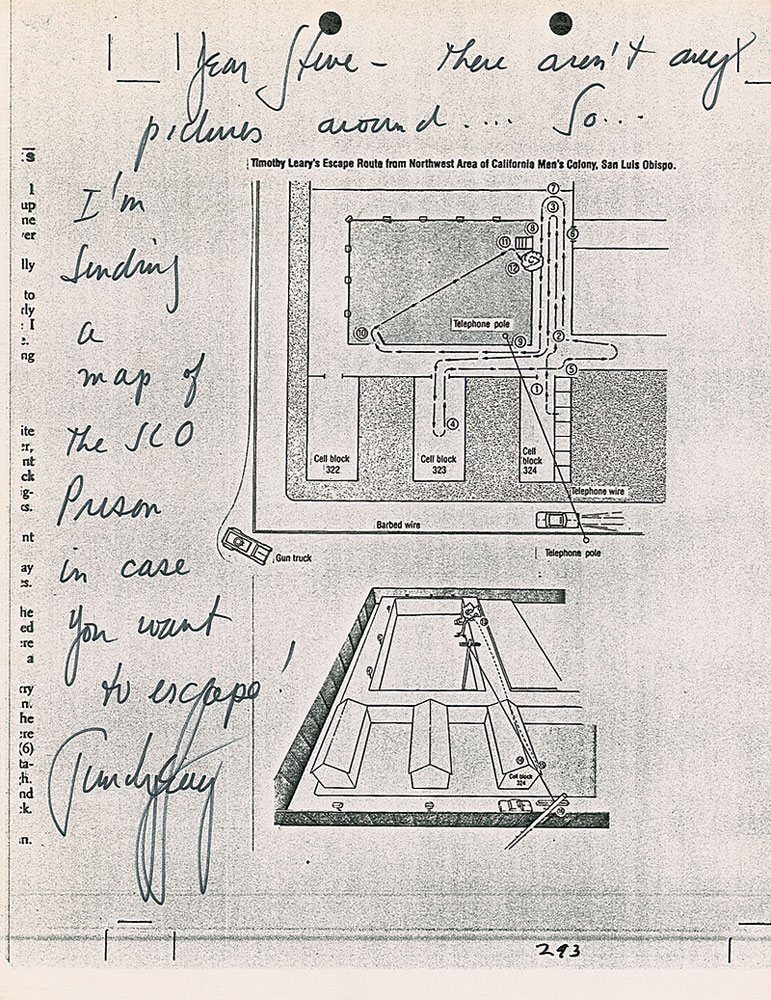 Dear Steve - there aren't any
pictures around .... So...
I'm
sending
a
map of
the SLO
Prison
in case
you want
to escape!
Timothy Leary
Timothy Leary's Escape Route from Northwest Area of California Men's Colony, San Luis Obispo.
7
3
8
6
11
12
Telephone pole
10
9
2
5
1
4
Cell block
322
Cell block
323
Cell
block
324
Telephone wire
Barbed wire
Telephone pole
Gun truck
Cell block
324
s
1
up
ne
ver
lly
to
rly
: I
ng
ite
er,
nt
ck
g-
cs.
nt
ay
es.
he
ed
re
a
ry
n.
he
ere
(6)
ta-
h.
nd
k.
n.
293